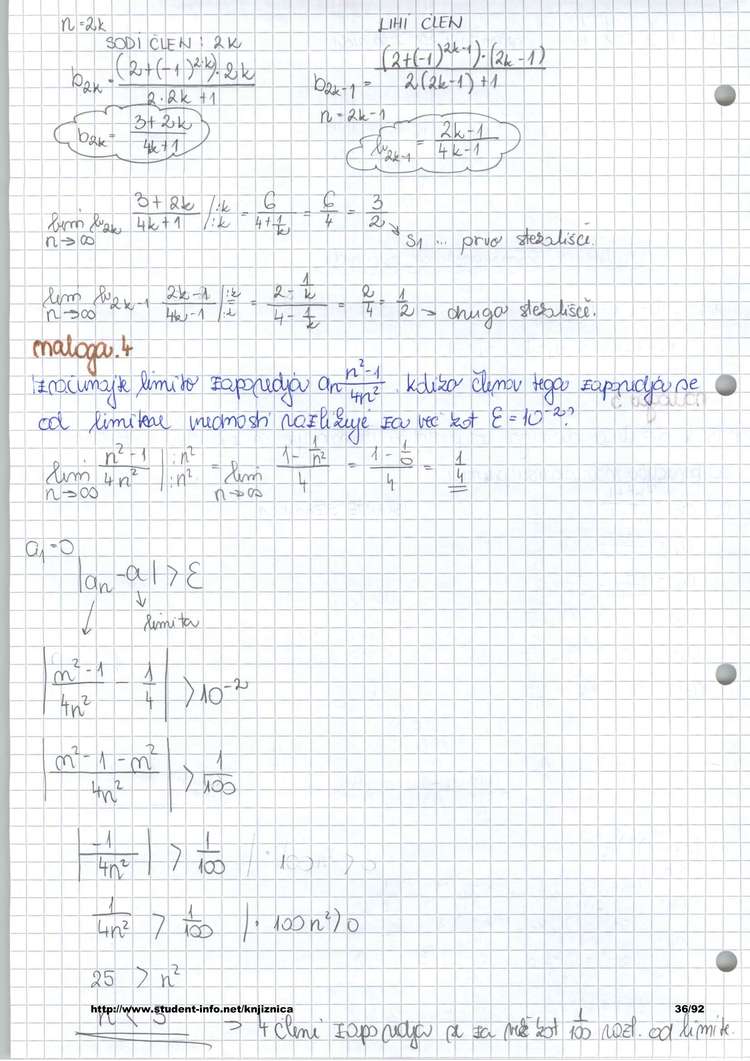 n=2k
SODI ČLEN: 2k
b2k = (2+(-1)^2·k)·2k / 2·2k+1
b2k = 3+2k / 4k+1
LIHI ČLEN
b2k-1 = (2+(-1)^2k-1)·(2k-1) / 2(2k-1)+1
n=2k-1
b2k-1 = 2k-1 / 4k-1
lim n→∞ b2k 3+2k / 4k+1 |:k :k = 6 / 4+1/k = 6/4 = 3/2 → S1 ... prvo stekališče.
lim n→∞ b2k-1 2k-1 / 4k-1 |:k :k = 2-1/k / 4-1/k = 2/4 = 1/2 → drugo stekališče.
naloga.4
Izračunajte limito zaporedja an n²-1 / 4n². členov tega zaporedja se
od limitne vrednosti razlikuje za več kot ε=10^-2?
lim n→∞ n²-1 / 4n² |:n² :n² = lim n→∞ 1-1/n² / 4 = 1-1/0 / 4 = 1/4
a1=0
|an-a| > ε
limita
|n²-1 / 4n² - 1/4| > 10^-2
|n²-1-n² / 4n²| > 1/100
|-1 / 4n²| > 1/100
1/4n² > 1/100 |· 100n²>0
25 > n²
n < 5 → 4 členi zaporedja se za več kot 1/100 razl. od limite.
http://www.student-info.net/knjiznica
36/92